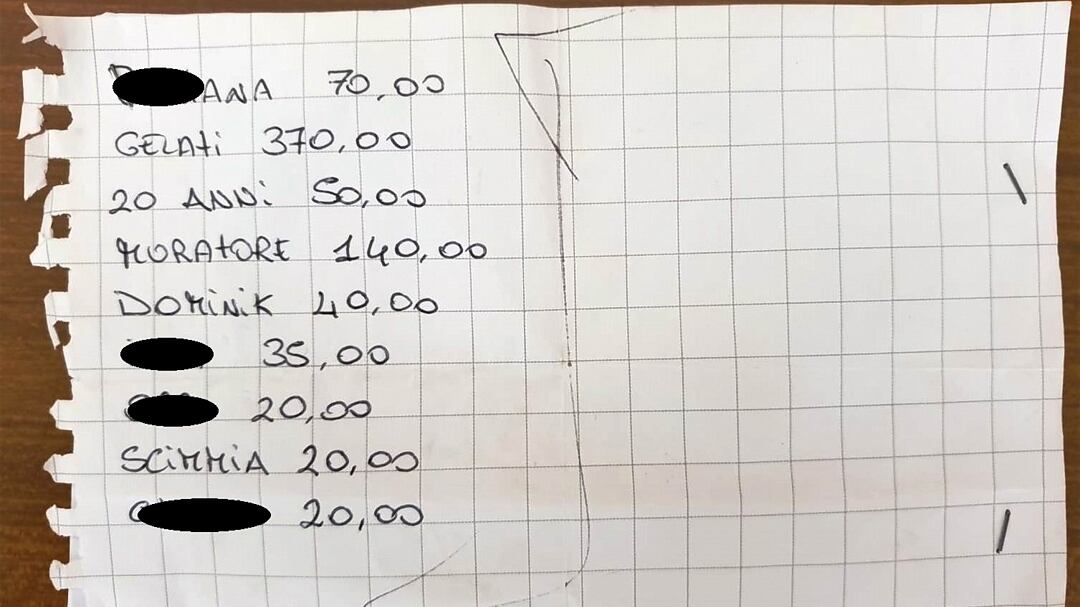 ANA 70,00
GELATi 370,00
20 ANNi 50,00
MURATORE 140,00
DOMiNiK 40,00
35,00
20,00
SCiMMiA 20,00
20,00